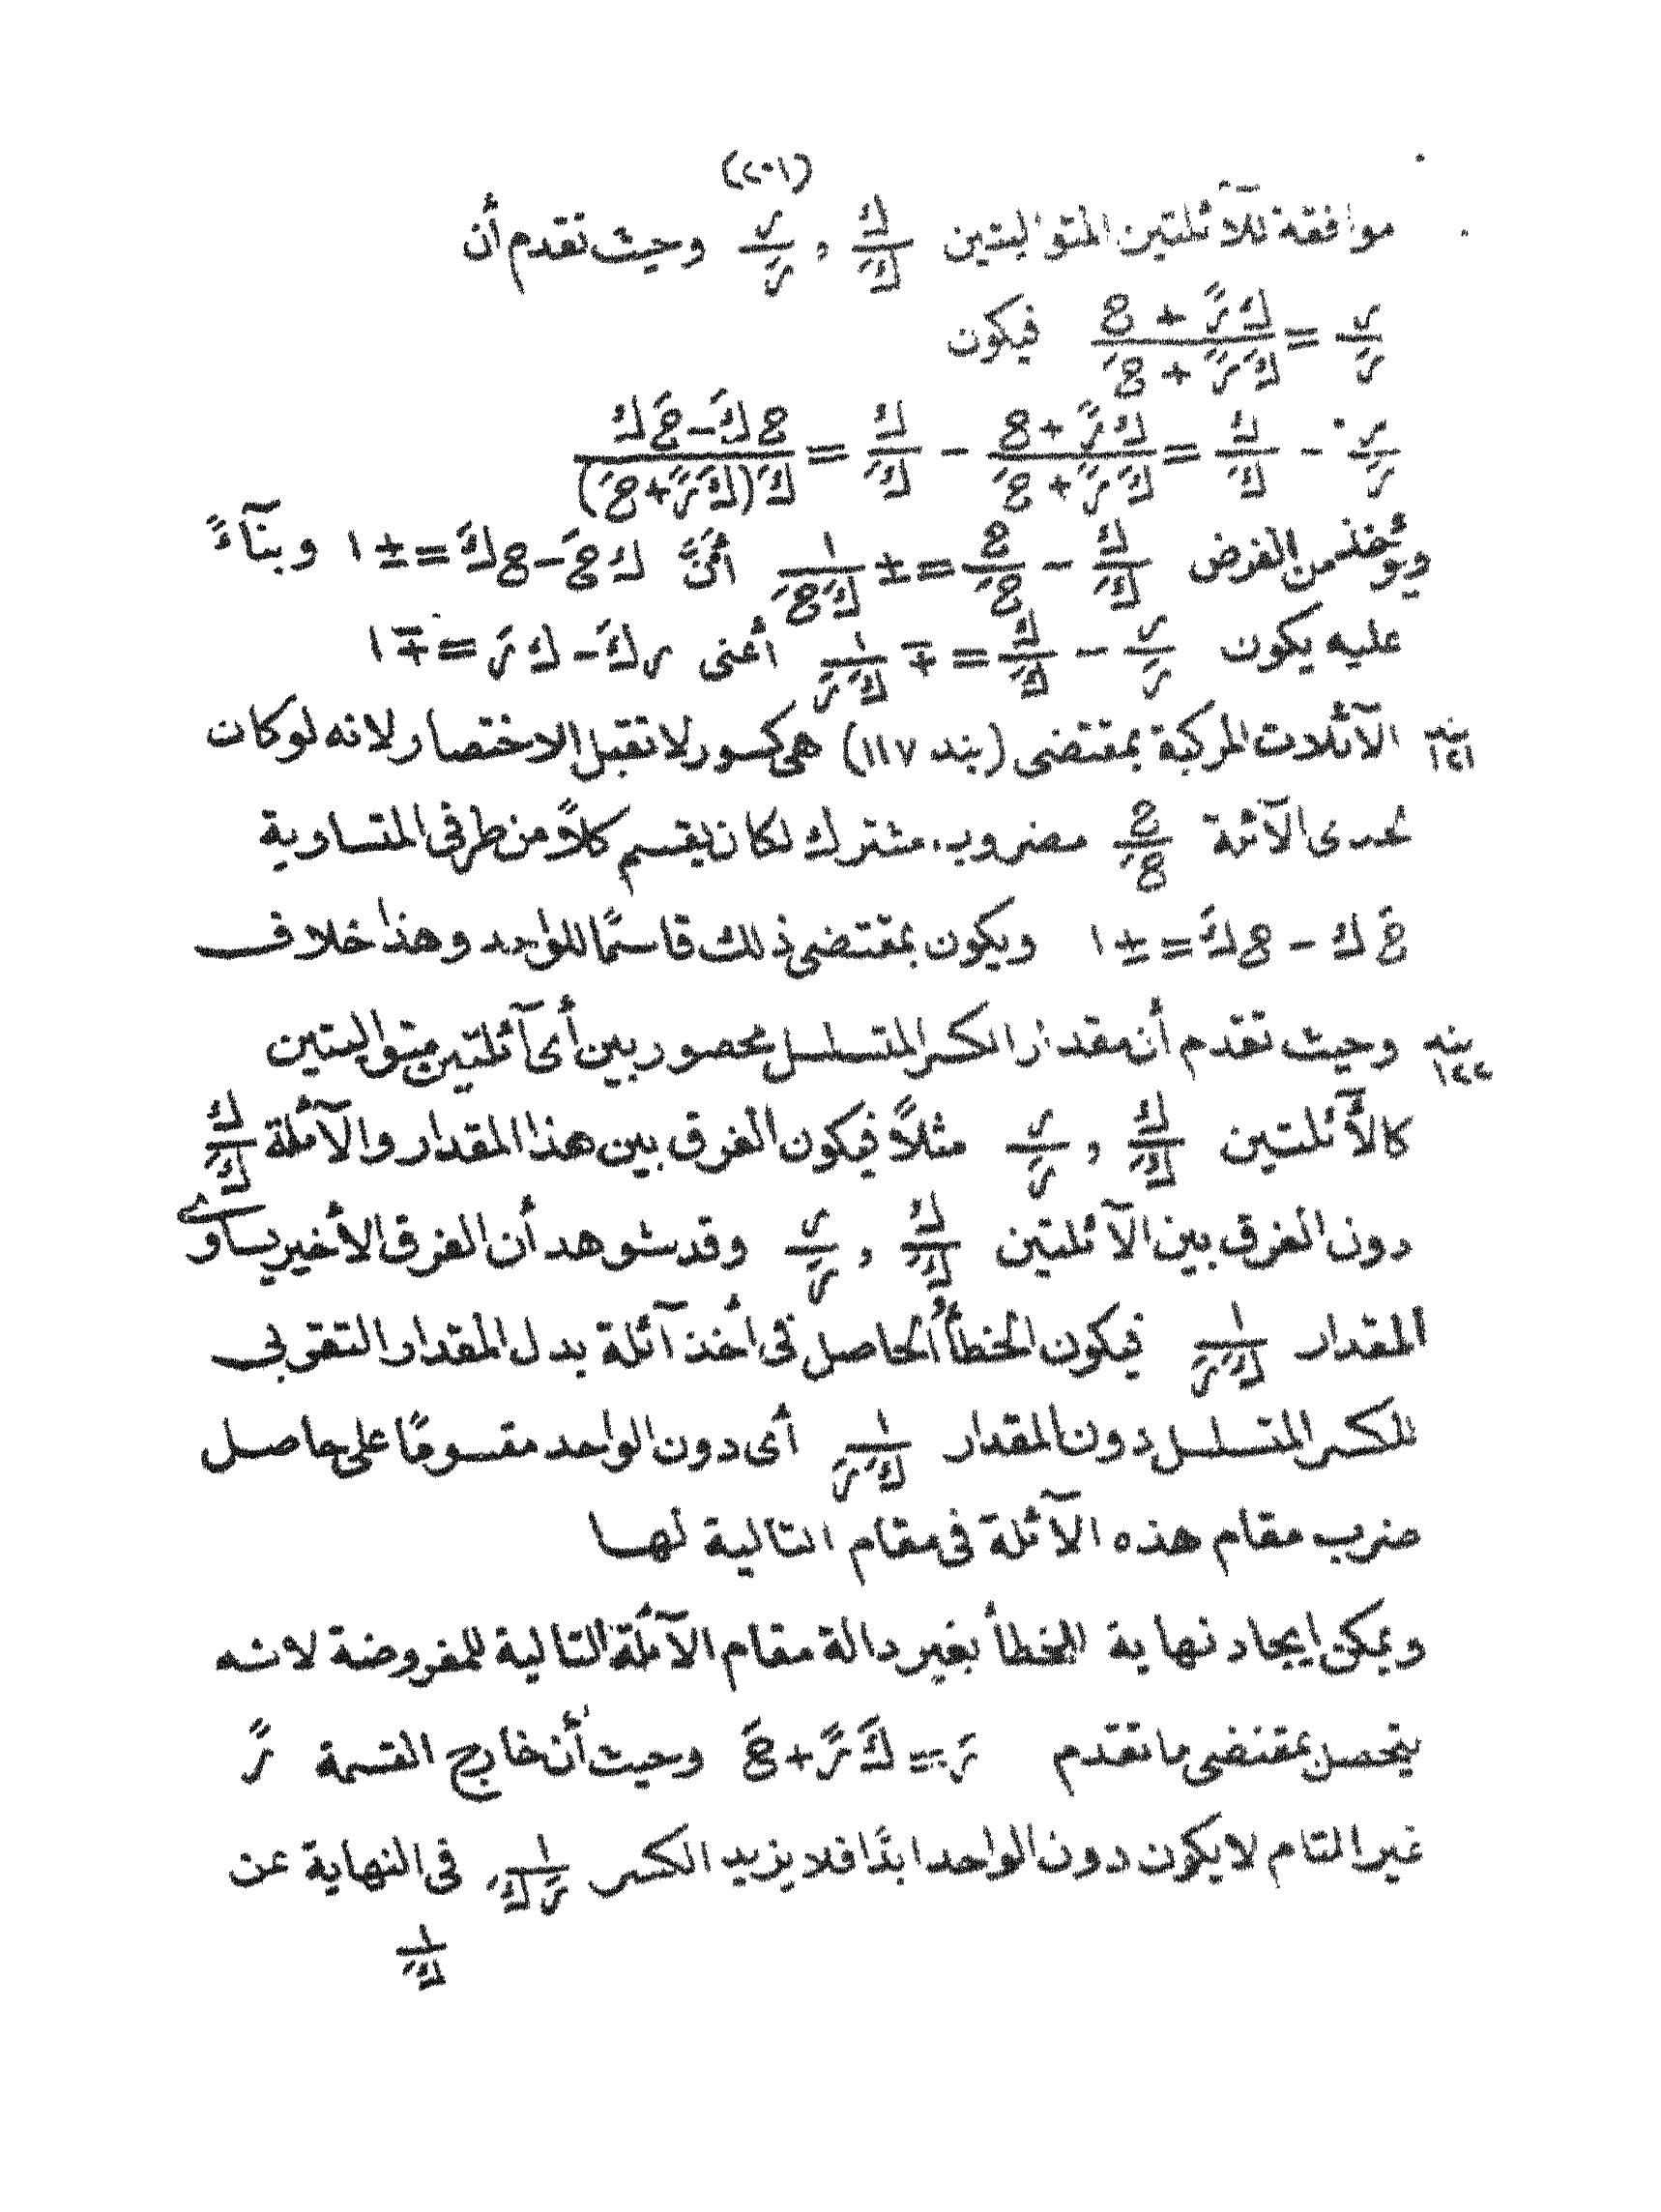 (٢٠١)
موافقة للآئلتين المتواليتين ك/كَ , ر/رَ وحيث تقدم أن
ر/رَ = (ك رً + ع)/(كَ رً + عَ) فيكون
ر/رَ - ك/كَ = (ك رً + ع)/(كَ رً + عَ) - ك/كَ = (ع كَ - عَ ك)/(كَ(كَ رً + عَ))
ويؤخذ من الفرض ك/كَ - ع/عَ = ± ١/(كَ عَ) أعنى ك عَ - ع كَ = ± ١ وبنآءً
عليه يكون ر/رَ - ك/كَ = ∓ ١/(كَ رَ) أعنى ر كَ - ك رَ = ∓ ١
بند ١٢١ الآئلات المركبة بمقتضى (بند ١١٧) هى كسور لا تقبل الاختصار لانه لو كان
لحدى الآئلة ع/عَ مضروب مشترك لكان يقسم كلاً من طرفى المتساوية
عَ ك - ع كَ = ± ١ ويكون بمقتضى ذلك قاسمًا للواحد وهذا خلاف
بند ١٢٢ وحيث تقدم أن مقدار الكسر المتسلسل محصور بين أى آئلتين متواليتين
كالآئلتين ك/كَ , ر/رَ مثلاً فيكون الفرق بين هذا المقدار والآئلة ك/كَ
دون الفرق بين الآئلتين ك/كَ , ر/رَ وقد شوهد أن الفرق الأخير يساوى
المقدار ١/(كَ رَ) فيكون الخطأ الحاصل فى أخذ آئلة بدل المقدار التقربى
للكسر المتسلسل دون المقدار ١/(كَ رَ) أى دون الواحد مقسومًا على حاصل
ضرب مقام هذه الآئلة فى مقام التالية لها
ويمكن إيجاد نهاية للخطأ بغير دالة مقام الآئلة التالية للمفروضة لانه
يتحصل بمقتضى ما تقدم رَ = كَ رً + عَ وحيث أن خارج القسمة رً
غير التام لا يكون دون الواحد ابدًا فلا يزيد الكسر ١/(رَ كَ) فى النهاية عن
١/كَ